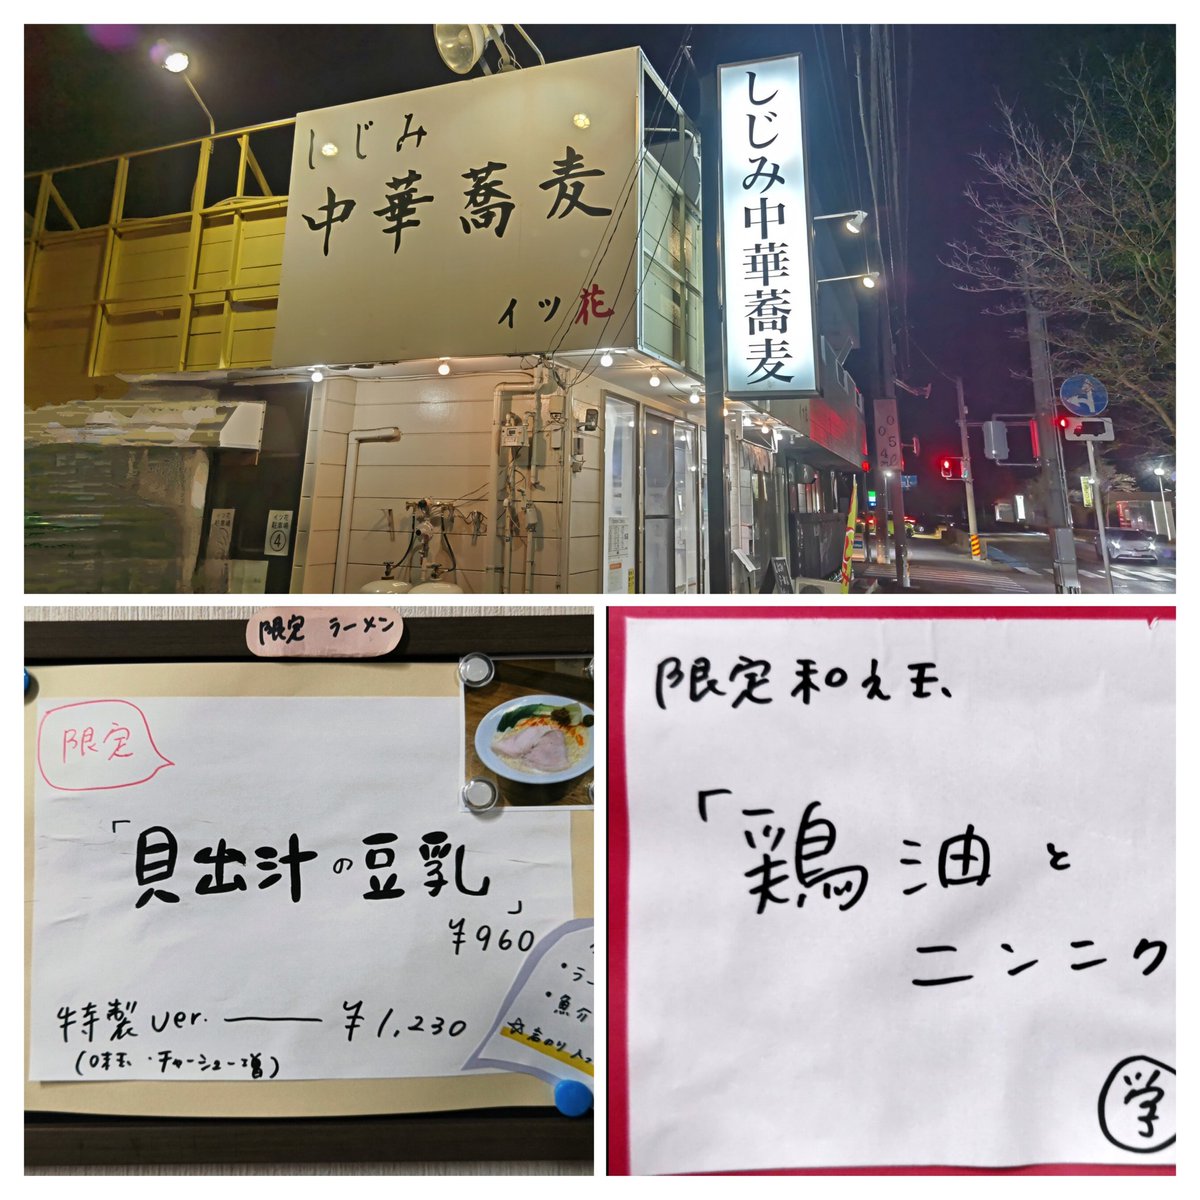 しじみ
中華蕎麦
イツ花
しじみ中華蕎麦
イツ花
駐車場
④
限定 ラーメン
限定
「貝出汁の豆乳」
¥960
特製 ver. ¥1,230
(味玉・チャーシュー増)
・ラー
・魚介
限定和え玉
「鶏油と
ニンニク
学